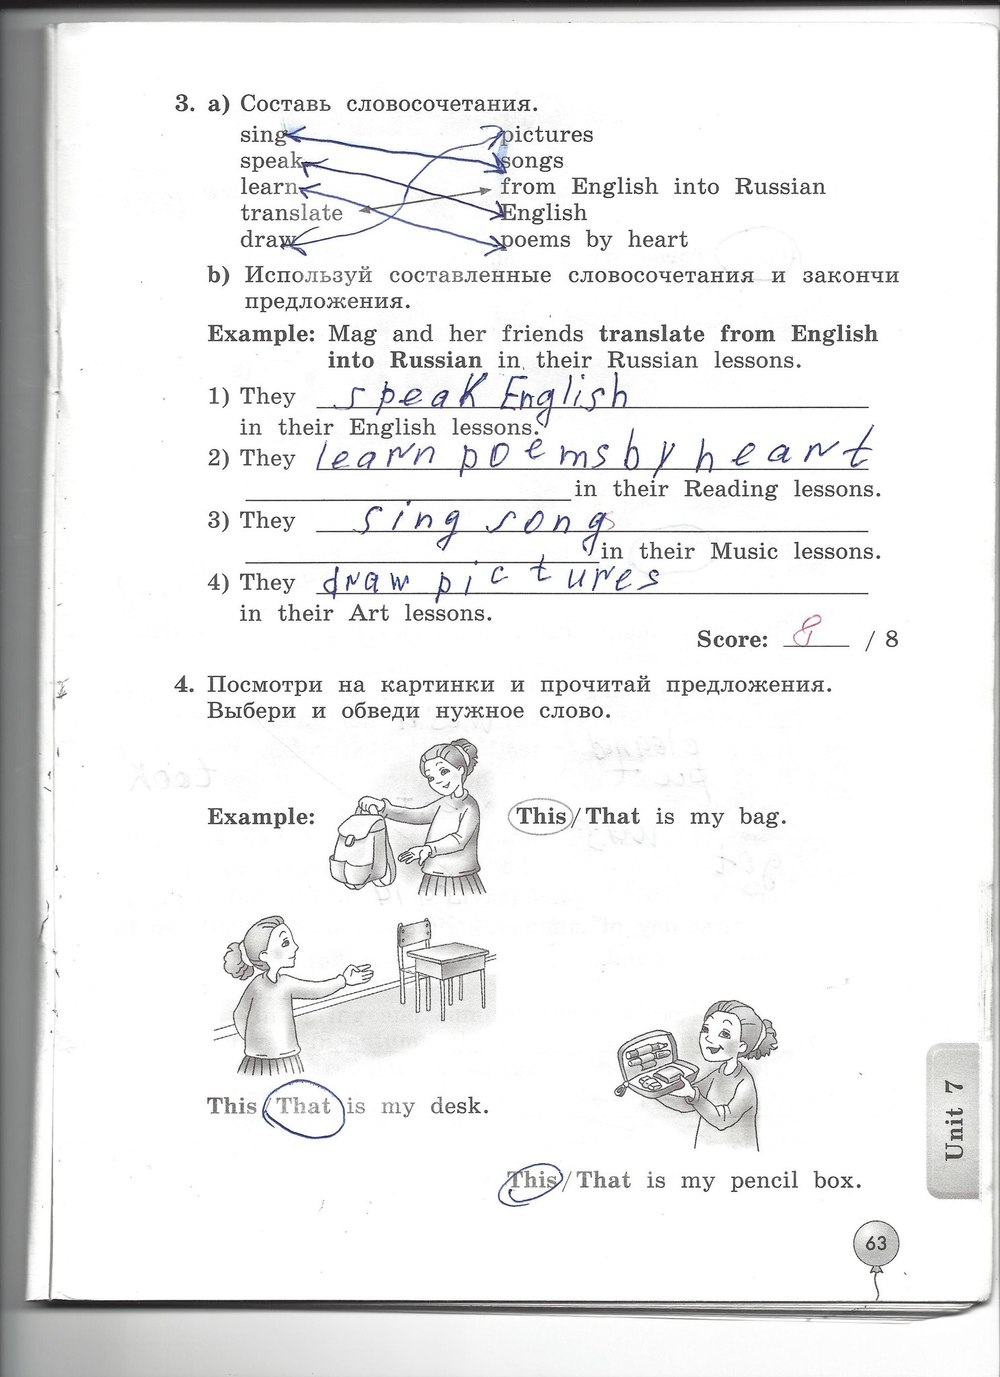 3. a) Составь словосочетания.
sing pictures
speak songs
learn from English into Russian
translate English
draw poems by heart
b) Используй составленные словосочетания и закончи
предложения.
Example: Mag and her friends translate from English
into Russian in their Russian lessons.
1) They speak English
in their English lessons.
2) They learn poems by heart
in their Reading lessons.
3) They sing songs
in their Music lessons.
4) They draw pictures
in their Art lessons.
Score: 8 / 8
4. Посмотри на картинки и прочитай предложения.
Выбери и обведи нужное слово.
Example: This/That is my bag.
This/That is my desk.
This/That is my pencil box.
Unit 7
63